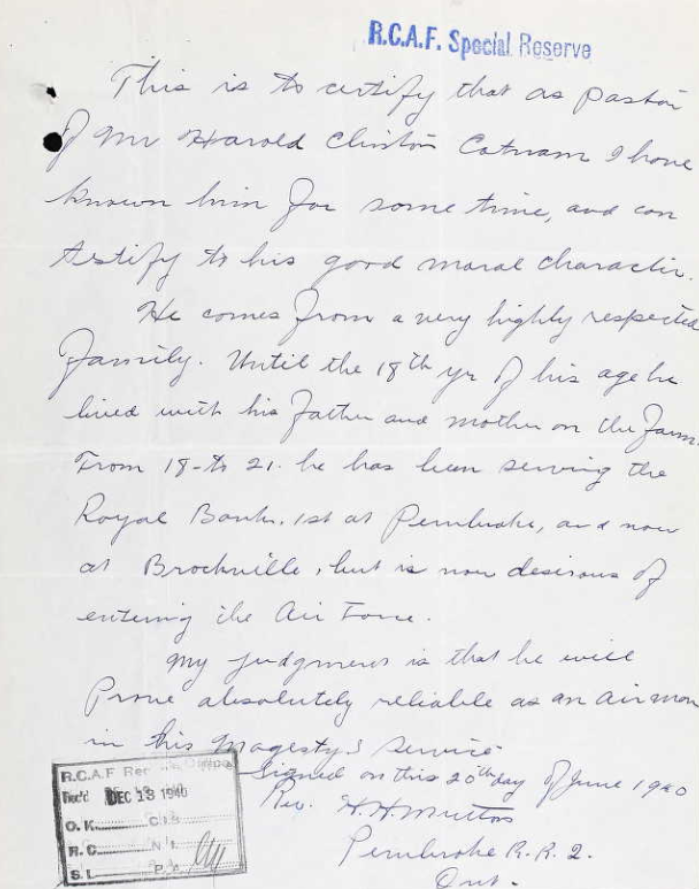 R.C.A.F. Special Reserve
This is to certify that as pastor
of Mr Harold Clinton Catnam I have
known him for some time, and can
testify to his good moral character.
He comes from a very highly respected
family. Until the 18th yr of his age he
lived with his father and mother on the farm.
From 18-to 21. he has been serving the
Royal Bank, 1st at Pembroke, and now
at Brockville, but is now desirous of
entering the Air Force.
My judgment is that he will
Prove absolutely reliable as an airman
in his Magesty's service.
Signed on this 20th day of June 1940
Rev. H.H. Mutton
Pembroke R.R.2.
Ont.
R.C.A.F Office
Rec'd DEC 13 1940
O.K.
R.C. N.I.
S.L.